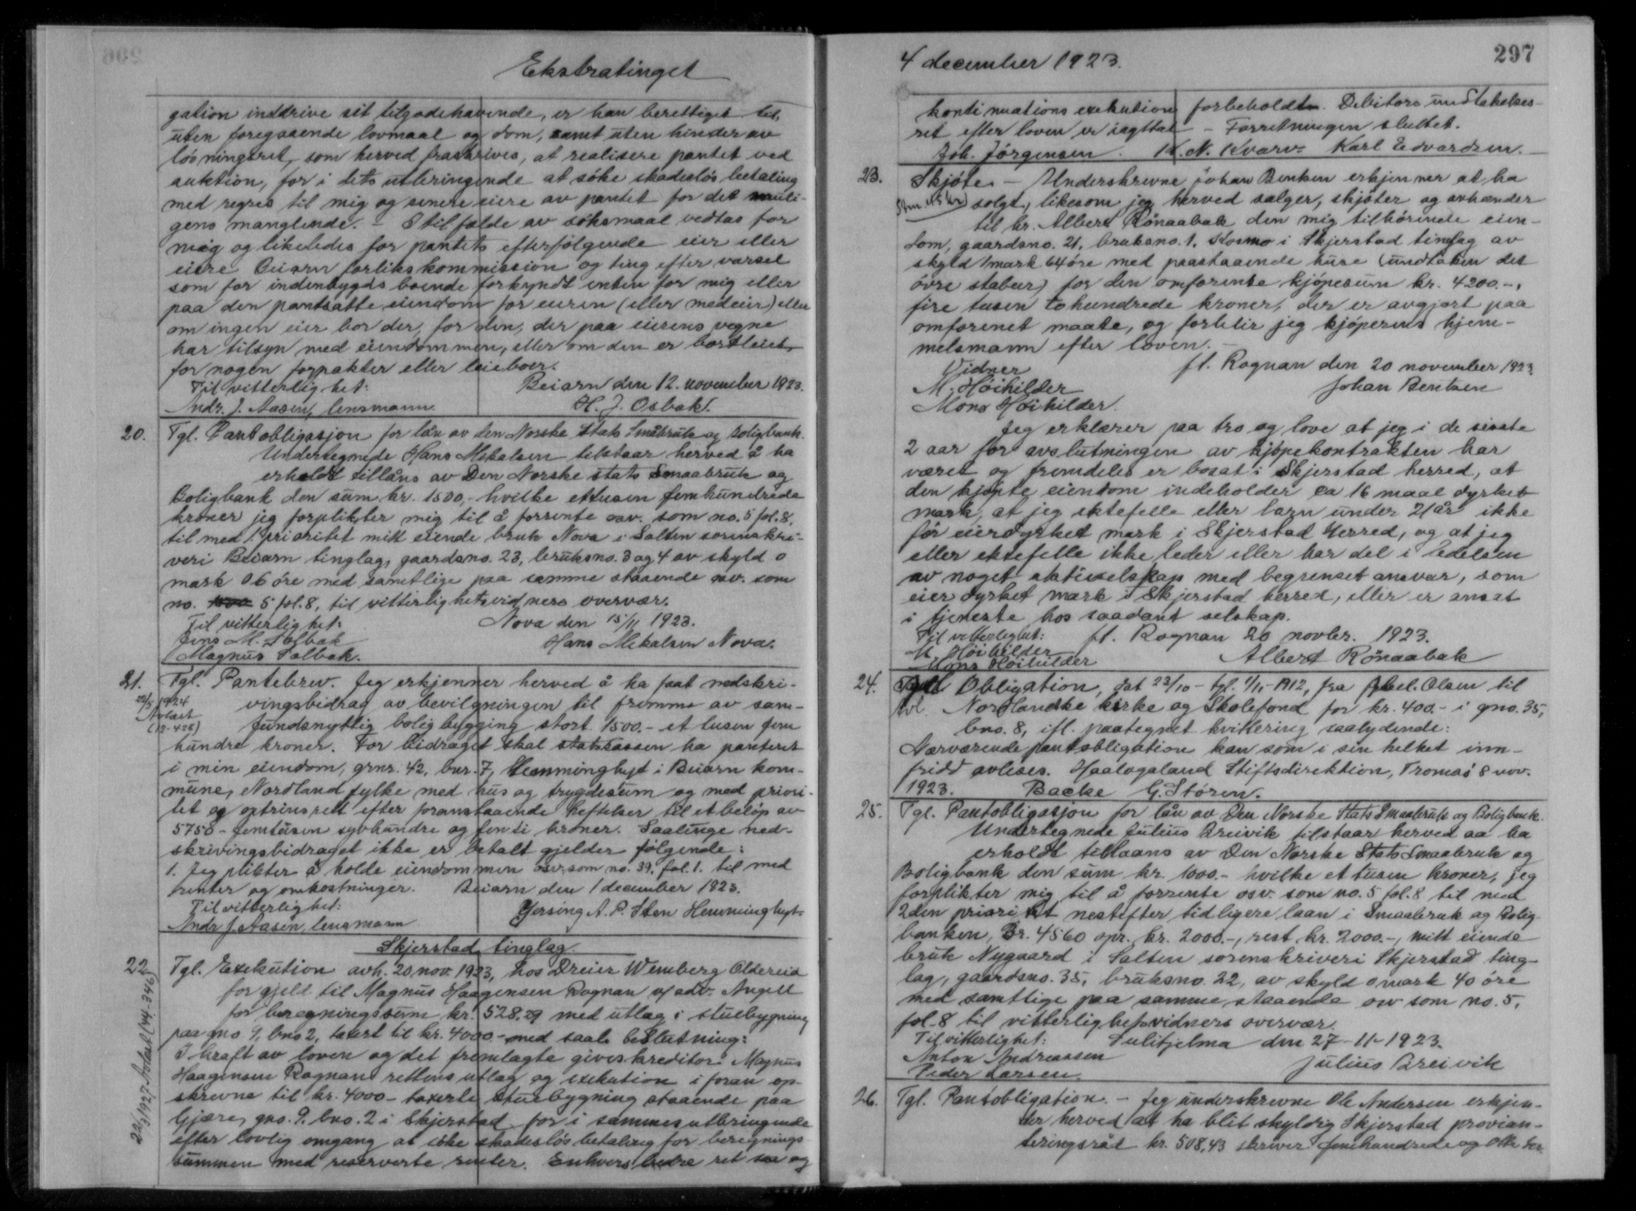 Ekstratinget
gation inddrive sit tilgodehavende, er han berettiget til,
uten foregaaende lovmaal og dom, samt uten hinder av
løsningsret, som herved fraskrives, at realisere pantet ved
auktion, for i dets utbringende at søke skadesløs betaling
med regres til mig og senere eiere av pantet for det muli-
gens manglende. – I tilfælde av søksmaal vedtas for
mig og likeledes for pantets efterfølgende eier eller
eiere Beiarn forlikskommission og ting efter varsel
som for indenbygds boende forkyndt enten for mig eller
paa den pantsatte eiendom for eieren (eller medeier) eller
om ingen eier bor der, for den, der paa eierens vegne
har tilsyn med eiendommen, eller om den er bortleiet,
for nogen forpakter eller leieboer.
Til vitterlighet: Beiarn den 12. november 1923.
Andr. J. Aasen, lensmann. H. J. Osbak.
20. Tgl. Pantobligasjon for lån av den Norske Stats Småbruk og Boligbank.
Undertegnede Hans Mikalsen tilstaar herved å ha
erholdt tillåns av Den Norske stats Smaabruk og
Boligbank den sum kr. 1500,- hvilke ettusen femhundrede
kroner jeg forplikter mig til å forrente osv. som no. 5 fol. 8,
til med 1 prioritet mitt eiende bruk Nova i Salten sorenskri-
veri Beiarn tinglag, gaardsno. 23, bruksno. 3 og 4 av skyld 0
mark 06 öre med samtlige paa samme staaende osv. som
no. 5 fol. 8, til vitterlighetsvidners overvær.
Til vitterlighet: Nova den 15/11 1923.
Jens M. Solbak Hans Mikalsen Nova.
Magnus Solbak.
21. Tgl. Pantebrev. Jeg erkjenner herved å ha faat nedskri-
1924 vingsbidrag av bevilgningen til fremme av sam-
Avlæst fundsnyttig boligbygging stort 1500.- et tusen fem
hundre kroner. For bidraget skal statskassen ha panterett
i min eiendom, grnr. 42, bnr. 7, Hemminghyt i Beiarn kom-
mune, Nordland fylke med hus og trygdesum og med priori-
tet og optrinsrett efter foranstaaende heftelser til et beløp av
5750 – femtusen syvhundre og femti kroner. Saalenge ned-
skrivingsbidraget ikke er betalt gjelder følgende:
1. Jeg plikter å holde eiendommen osv. som no. 39, fol. 1. til med
renter og omkostninger. Beiarn den 1 december 1923.
Til vitterlighet: A. P. Sten Hemminghyt.
Andr. J. Aasen, lensmann
Skjerstad tinglag
22. Tgl. Exekution avh. 20. nov. 1923, hos Dreier Wemberg Oldereid
for gjeld til Magnus Haagensen Rognan v/ adv. Angell
for beregningssum kr. 528,29 med utlæg i stuebygning
paa gno 9, bno 2, taxert til kr. 4000 – med saal. beslutning:
I kraft av loven og det fremlagte gives kreditor: Magnus
Haagensen Rognan rettens utlæg og exekution i foran op-
skrevne til kr. 4000 – taxerte stuebygning staaende paa
Gjære, gno. 9, bno. 2 i Skjerstad for i sammes utbringende
efter lovlig omgang at söke skadesløs betaling for beregnings
summen med reserverte renter. Enhvers bedre ret saa og
4 december 1923.
297
kontinuations exekution forbeholdtes. Debitors undtakelses-
ret efter loven er iagttat – Forretningen sluttet.
Joh. Jörgensen. K. N. Kvarv. Karl Edvardsen.
23. Skjöte – Underskrevne Johan Bentsen erkjenner at ha
solgt, likesom jeg herved sælger, skjöter og avhænder
til hr. Albert Rönaabak den mig tilhörende eien-
dom, gaardsno. 21, bruksno. 1. Kosmo i Skjerstad tinglag av
skyld 1 mark 64 öre med paastaaende huse (undtaken det
övre stabur) for den omforente kjöpesum kr. 4200.-,
fire tusen to hundrede kroner, der er avgjort paa
omforenet maate, og forblir jeg kjöperens hjem-
melsmann efter loven. –
Vidner ft. Rognan den 20 november 1923.
M. Höihilder Johan Bentsen
Mons Höihilder.
Jeg erklærer paa tro og love at jeg i de sisste
2 aar for avslutningen av kjöpekontrakten har
været og fremdeles er bosat i Skjerstad herred, at
den kjöpte eiendom indeholder ca 16 maal dyrket
mark, at jeg ektefelle eller barn under 21 år ikke
för eier dyrket mark i Skjerstad Herred, og at jeg
eller ektefelle ikke leder eller har del i ledelsen
av noget aktieselskap med begrenset ansvar, som
eier dyrket mark i Skjerstad herred, eller er ansat
i tjeneste hos saadant selskap.
Til vitterlighet: ft. Rognan 20 novbr. 1923.
M. Höihilder Albert Rönaabak
Mons Höihilder
24. Obligation, dat 23/10 – tgl. 1/11-1912, fra Olsen til
Nordlandske kirke og Skolefond for kr. 400.- i gno. 35,
bno. 8, ifl. paategnet kvittering saalydende:
Nærværende pantobligation kan som i sin helhet inn-
fridd avlæses. Haalogaland Stiftsdirektion, Tromsö 8 nov.
1923. Backe G. Stören.
25. Tgl. Pantobligasjon for lån av Den Norske Stats Smaabruk og Boligbank.
Undertegnede Julius Breivik tilstaar herved aa ha
erholdt tillaans av Den Norske Stats Smaabruk og
Boligbank den sum kr. 1000.- hvilke et tusen kroner, jeg
forplikter mig til å forrente osv. som no. 5 fol. 8 til med
2den prioritet nestefter tidligere laan i Smaabruk og Bolig-
banken, Br. 4560 opr. kr. 2000.-, rest kr. 2000.-, mitt eiende
bruk Nygaard i Salten sorenskriveri Skjerstad ting-
lag, gaardsno. 35, bruksno. 22, av skyld 0 mark 40 öre
med samtlige paa samme staaende osv som no. 5,
fol. 8 til vitterlighetsvidners overvær.
Til vitterlighet: Sulitjelma den 27-11-1923.
Anton Andreassen Julius Breivik
Peder Larsen.
26. Tgl. Pantobligation. – Jeg underskrevne Ole Andersen erkjen-
der herved at ha blit skyldig Skjerstad provian-
teringsråt kr. 508,43 skriver femhundrede og otte kr.
22/3 1927 Avlæst (44-346)